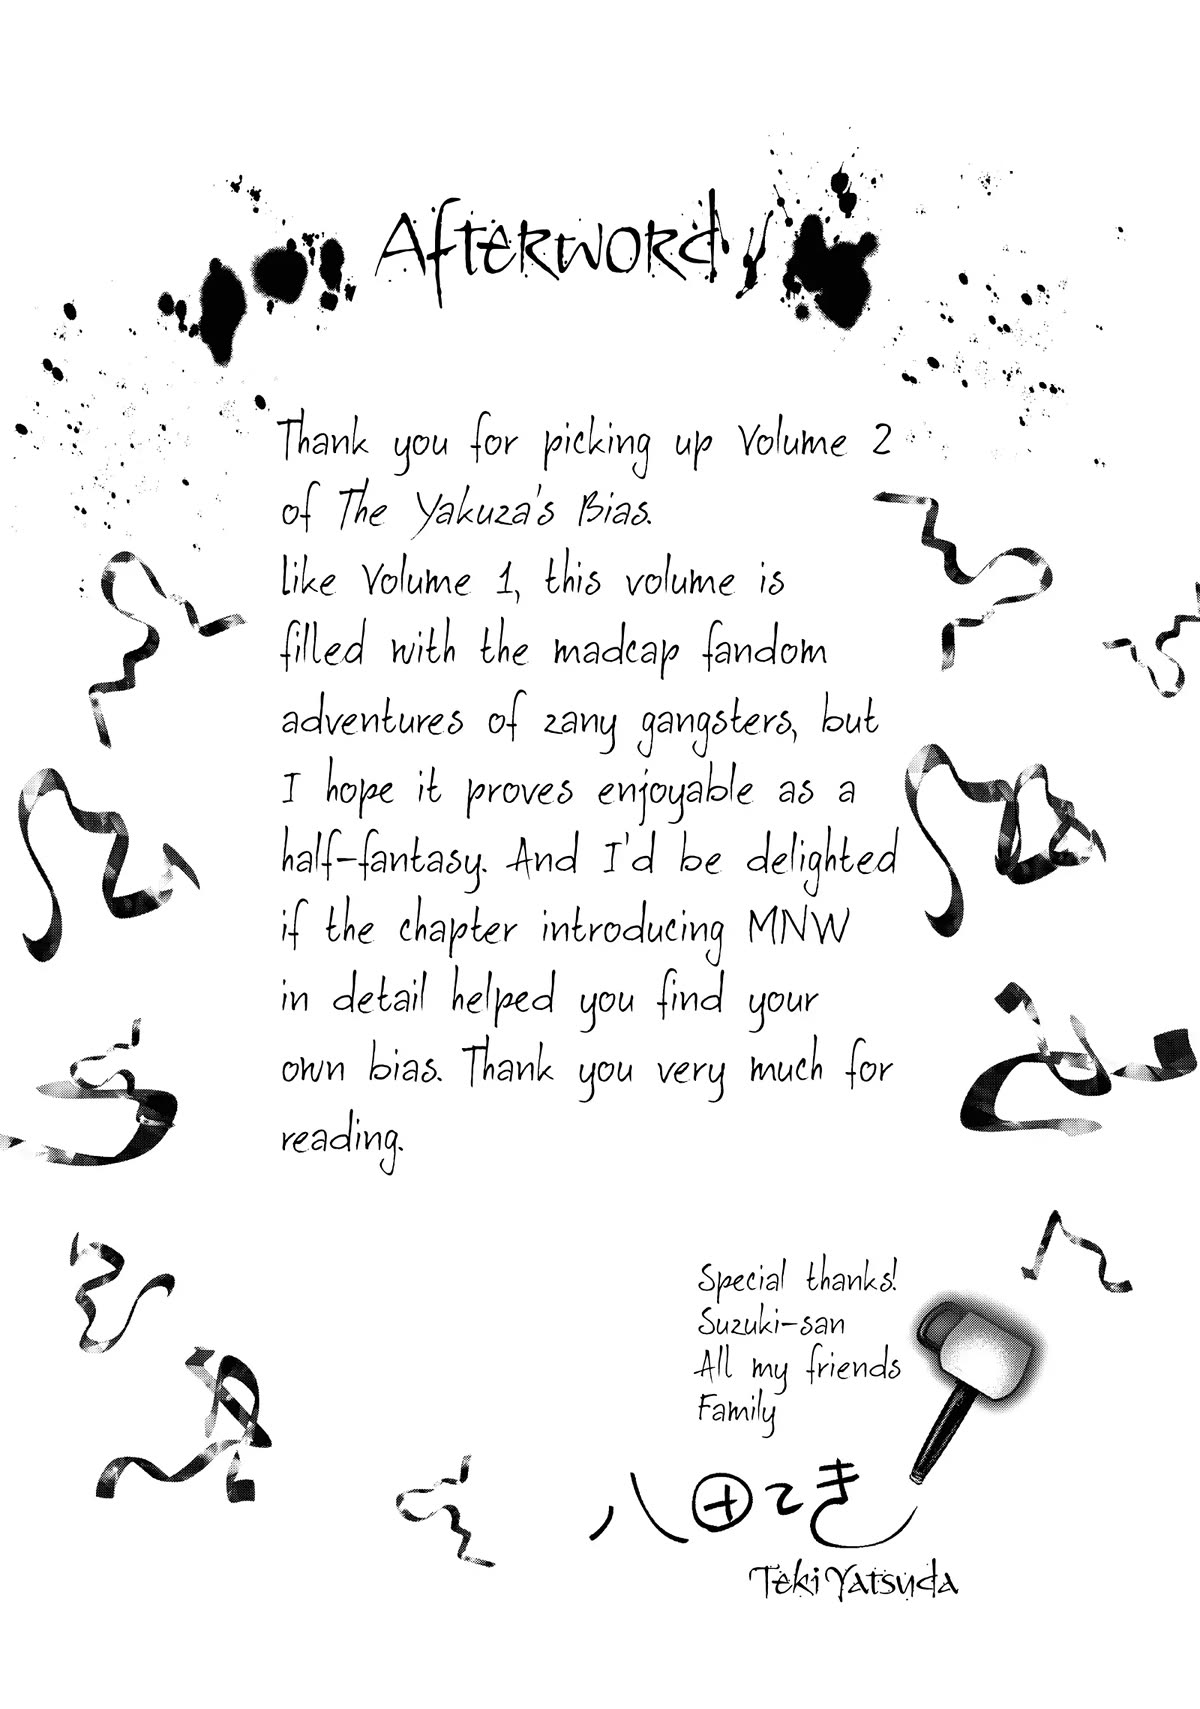 Afterword
Thank you for picking up Volume 2
of The Yakuza's Bias.
like Volume 1, this volume is
filled with the madcap fandom
adventures of zany gangsters, but
I hope it proves enjoyable as a
half-fantasy. And I'd be delighted
if the chapter introducing MNW
in detail helped you find your
own bias. Thank you very much for
reading.
Special thanks!
Suzuki-san
All my friends
Family
八田てき
Teki Yatsuda